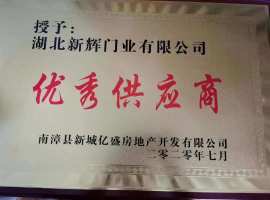 授予：
湖北新辉门业有限公司
优秀供应商
南漳县新城亿盛房地产开发有限公司
二零二零年七月